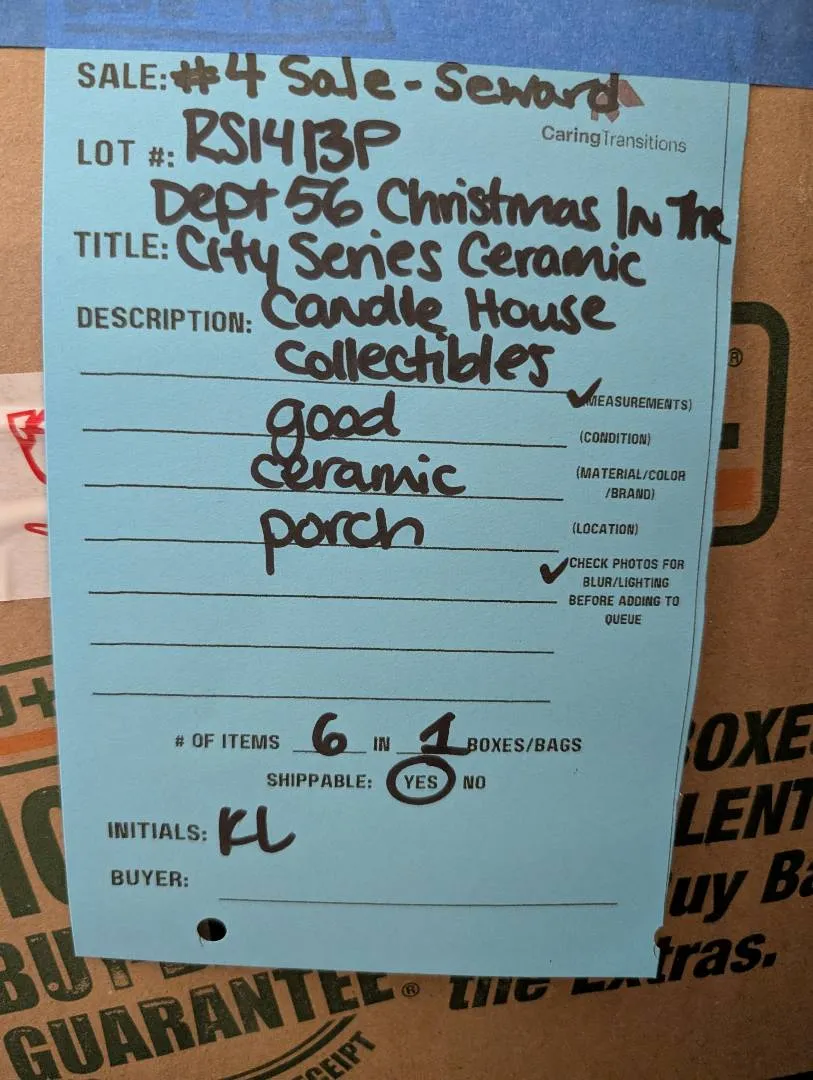 SALE: #4 Sale - Seward
CaringTransitions
LOT #: RS1413P
Dept 56 Christmas In The
TITLE: City Series Ceramic
DESCRIPTION: Candle House
Collectibles
✓ MEASUREMENTS)
good (CONDITION)
ceramic (MATERIAL/COLOR
/BRAND)
porch (LOCATION)
✓ CHECK PHOTOS FOR
BLUR/LIGHTING
BEFORE ADDING TO
QUEUE
# OF ITEMS 6 IN 1 BOXES/BAGS
SHIPPABLE: YES NO
INITIALS: KL
BUYER:
GUARANTEE®
the Extras.